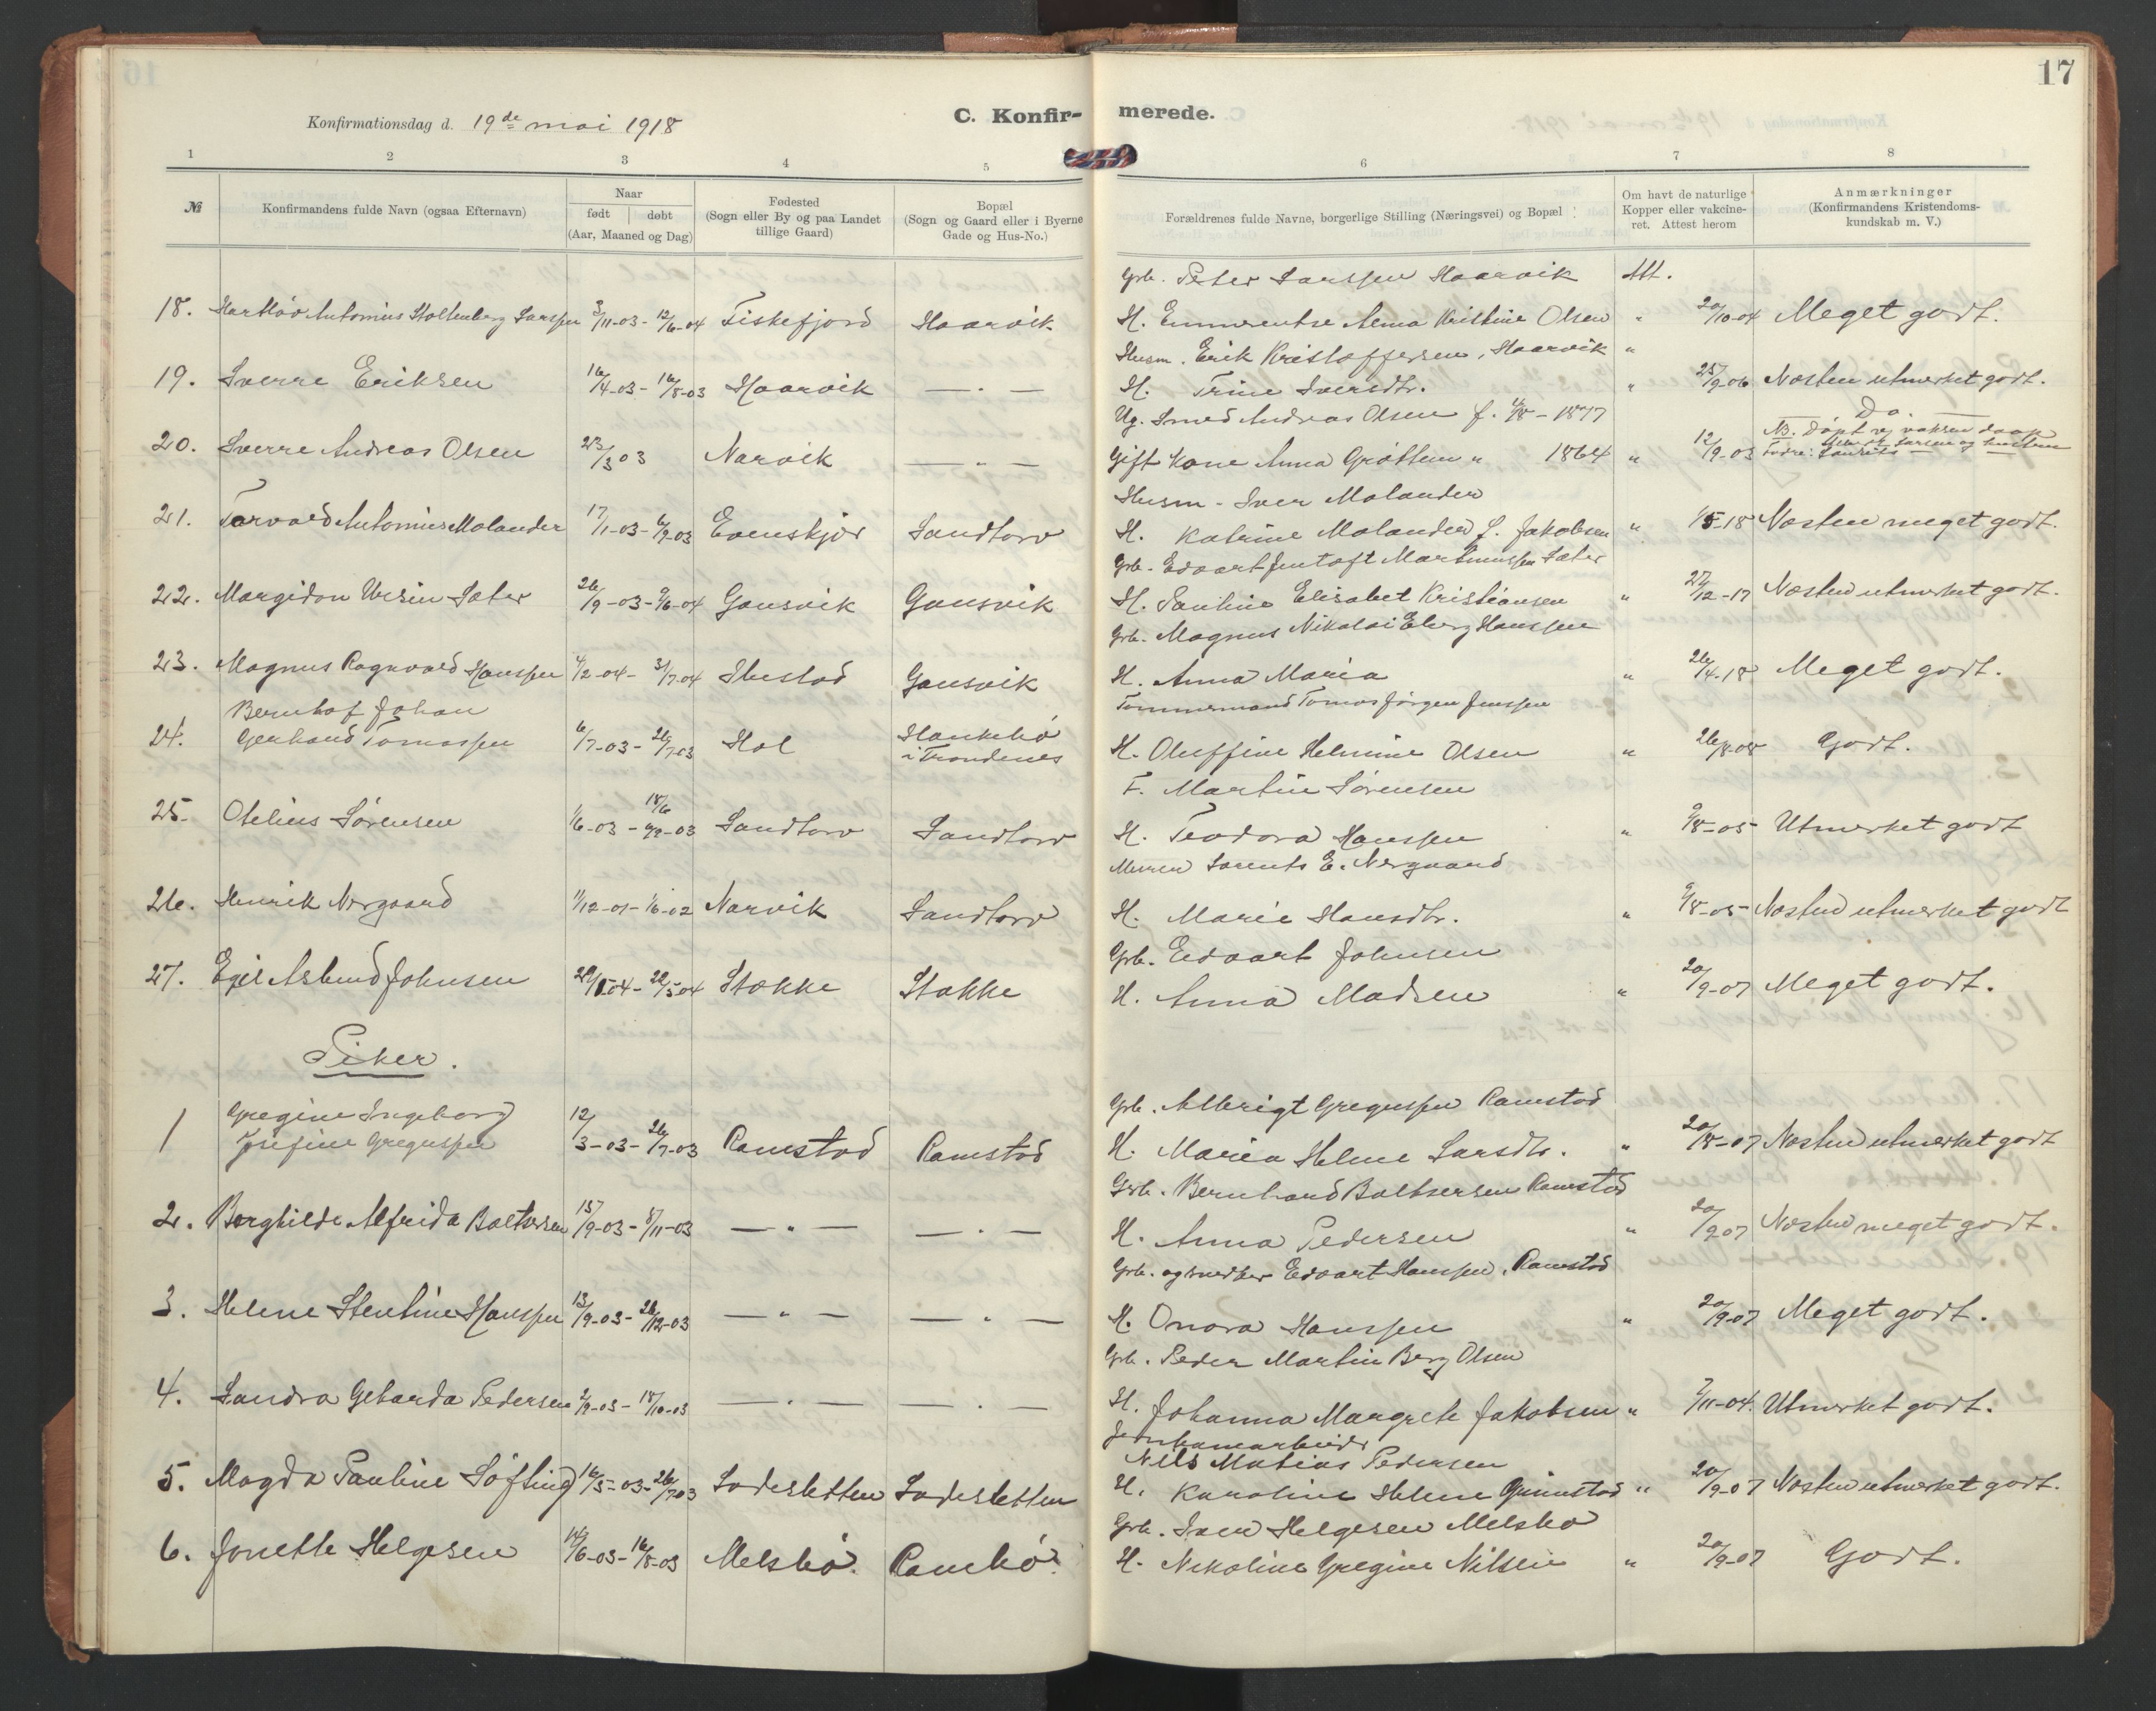 17
Konfirmationsdag d. 19de mai 1918
C. Konfir-
merede.
1 2 3 4 5 6 7 8
№
Konfirmandens fulde Navn (ogsaa Efternavn)
Naar
født | døbt
(Aar, Maaned og Dag)
Fødested
(Sogn eller By og paa Landet
tillige Gaard)
Bopæl
(Sogn og Gaard eller i Byerne
Gade og Hus-No.)
Forældrenes fulde Navne, borgerlige Stilling (Næringsvei) og Bopæl
Om havt de naturlige
Kopper eller vakcine-
ret. Attest herom
Anmærkninger
(Konfirmandens Kristendoms-
kundskab m. V.)
Grb. Peter Larssen Haarvik Att.
18. Antonius Stoltenberg Larssen 3/11-03 - 12/6-04 Fiskefjord Haarvik
H. Anna Kristine Olsen " 20/10-04 Meget godt.
Husm. Erik Kristoffersen, Haarvik "
19. Sverre Eriksen 16/4-03 - 16/8-03 Haarvik — . —
H. Trine Iversdtr. " 25/9-06 Næsten utmerket godt.
Ug. Smed Andreas Olsen f. - 1877
— Do. —
20. Sverre Andreas Olsen 23/3 03 Narvik — " —
Gift Kone Anna Grøttem " 1864 " 12/9-03
NB. Døpt v.
Husm. Iver Molander
21. Torvald Antonius Molander 17/1-03 - 6/9-03 Evenskjer Sandtorv
H. Katrine Molander f. Jakobsen " 1/5-18 Næsten meget godt.
Grb. Edvart Martinussen Sæter
22. Margidon Ursin Sæter 26/9-03 - 9/6-04 Gausvik Gausvik
H. Pauline Elisabet Kristiansen " 27/12-17 Næsten utmerket godt.
Grb. Magnus Nikolai Hanssen
23. Magnus Ragnvald Hanssen 4/2-04 - 3/7-04 Ibestad Gausvik
H. Anna Maria " 26/4.18 Meget godt.
Bernhof Johan
Tømmermand Tomas Jørgen Jenssen
24. Gerhard Tomassen 6/7-03 - 26/7 03 Hol
i Trondenes
H. Oluffine Helmine Olsen " 26/8-08 Godt.
F. Martin Sørensen
25. Otelius Sørensen 1/6-03 - 18/6 Sandtorv Sandtorv
H. Teodora Hanssen " 9/8-05 Utmerket godt
Lorents E. Nergaard
26. Henrik Nergaard 11/12-01 - 1/6-02 Narvik Sandtorv
H. Marie Hansdtr. " 9/8-05 Næsten utmerket godt
Grb. Edvart Johnsen
27. Egil Aslund Johnsen - 22/5 04 Stokke Stokke
H. Anna Madsen " 20/9-07 Meget godt.
Piker.
Gregine Ingeborg
Grb. Albrigt Gregussen Ramstad
1 Josefine Gregussen 12/3-03 - 26/7-03 Ramstad Ramstad
H. Maria Helene Larsdtr. " 20/8-07 Næsten utmerket godt
Grb. Bernhard Baltsersen Ramstad
2. Borghilde Alfrida Baltsersen 15/9-03 - 8/11-03 — " — — . —
H. Anna Pedersen " 20/9 07 Næsten meget godt.
Grb. og snedker Edvart Hanssen, Ramstad
3. Helene Stentine Hanssen 13/9-03 - 26/12-03 — " — — " —
H. Onora Hanssen " 20/9-07 Meget godt.
Grb. Peder Martin Berg Olsen
4. Sandra Geharda Pedersen 2/9-03 - 18/10-03 — . — — . —
H. Johanna Margrete Jakobsen " 7/11-04. Utmerket godt.
Jernbanearbeider
Nils Matias Pedersen
5. Magda Pauline Søfting 16/5-03 - 26/7 03 Sadesletten Sadesletten
H. Karoline Helene Grimstad " 20/9-07 Næsten utmerket godt.
Grb. Iver Helgesen Melsbø
6. Jonette Helgesen 14/6-03 - 16/8-03 Melsbø. Rambø.
H. Nikoline Gregine Nilsen " 20/9-07 Godt.